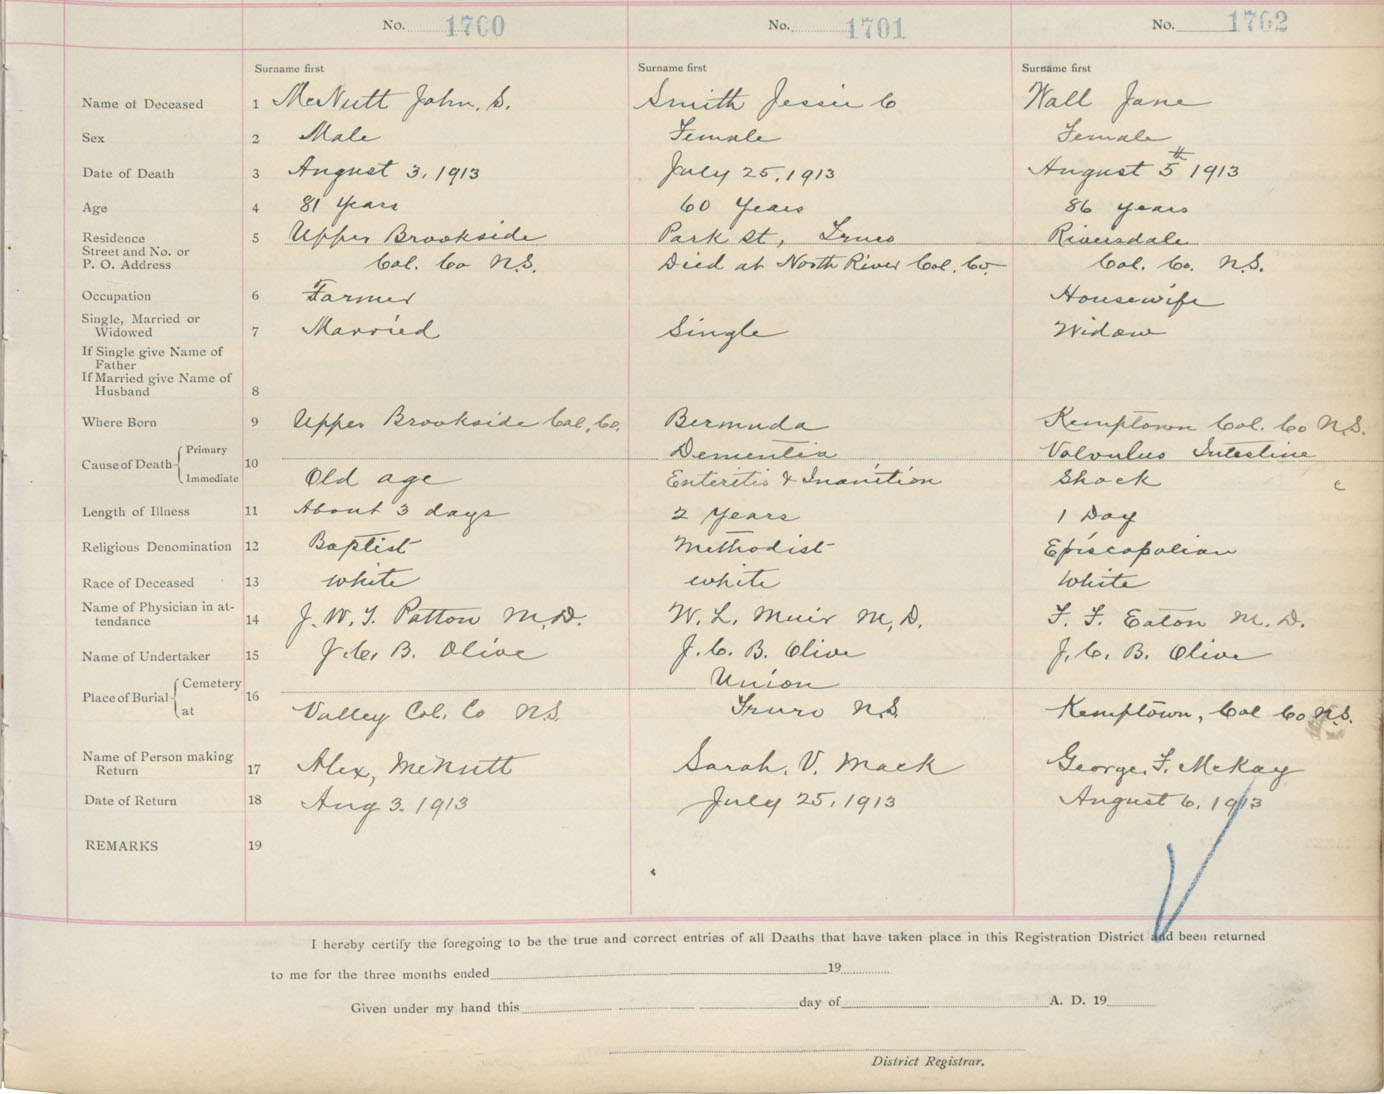 No. 1700 No. 1701 No. 1702
Surname first Surname first Surname first
Name of Deceased 1 McNutt John. S. Smith Jessie C Wall Jane
Sex 2 Male Female Female
Date of Death 3 August 3, 1913 July 25, 1913 August 5th 1913
Age 4 81 years 60 Years 86 years
Residence 5 Upper Brookside Park St, Truro Riversdale
Street and No. or
P. O. Address Col. Co N.S. Died at North River Col. Co. Col. Co. N.S.
Occupation 6 Farmer Housewife
Single, Married or
Widowed 7 Married Single Widow
If Single give Name of
Father
If Married give Name of
Husband 8
Where Born 9 Upper Brookside Col. Co. Bermuda Kemptown Col. Co N.S.
Cause of Death Primary Dementia Volvulus Intestine
10
Immediate Old age Enteritis & Inanition Shock
Length of Illness 11 About 3 days 2 Years 1 Day
Religious Denomination 12 Baptist Methodist Episcopalian
Race of Deceased 13 White white White
Name of Physician in at-
tendance 14 J. W. T. Patton M.D. W. L. Muir M.D. F. F. Eaton M. D.
Name of Undertaker 15 J. C. B. Olive J. C. B. Olive J. C. B. Olive
Place of Burial Cemetery Union
16
at Valley Col. Co N.S. Truro N.S. Kemptown, Col Co N.S.
Name of Person making
Return 17 Alex, McNutt Sarah. V. Mack George, F. McKay
Date of Return 18 Aug 3. 1913 July 25, 1913 August 6, 1913
REMARKS 19
I hereby certify the foregoing to be the true and correct entries of all Deaths that have taken place in this Registration District and been returned
to me for the three months ended 19
Given under my hand this day of A. D. 19
District Registrar.